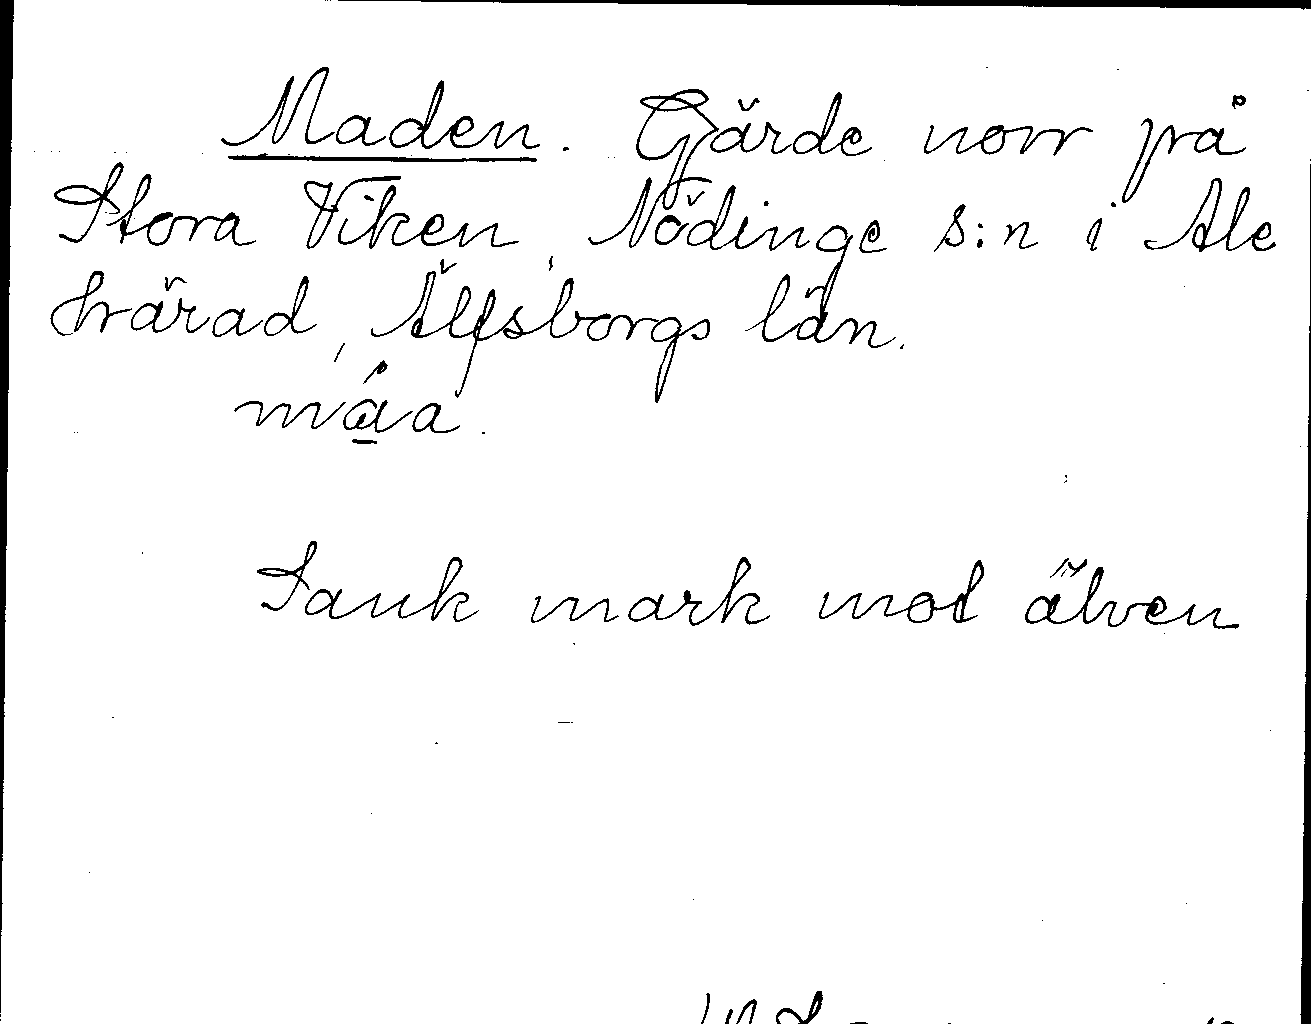 Maden. Gärde norr på
Stora Viken, Nödinge s:n i Ale
härad, Älfsborgs län.
må̱a.
Sank mark mot älven